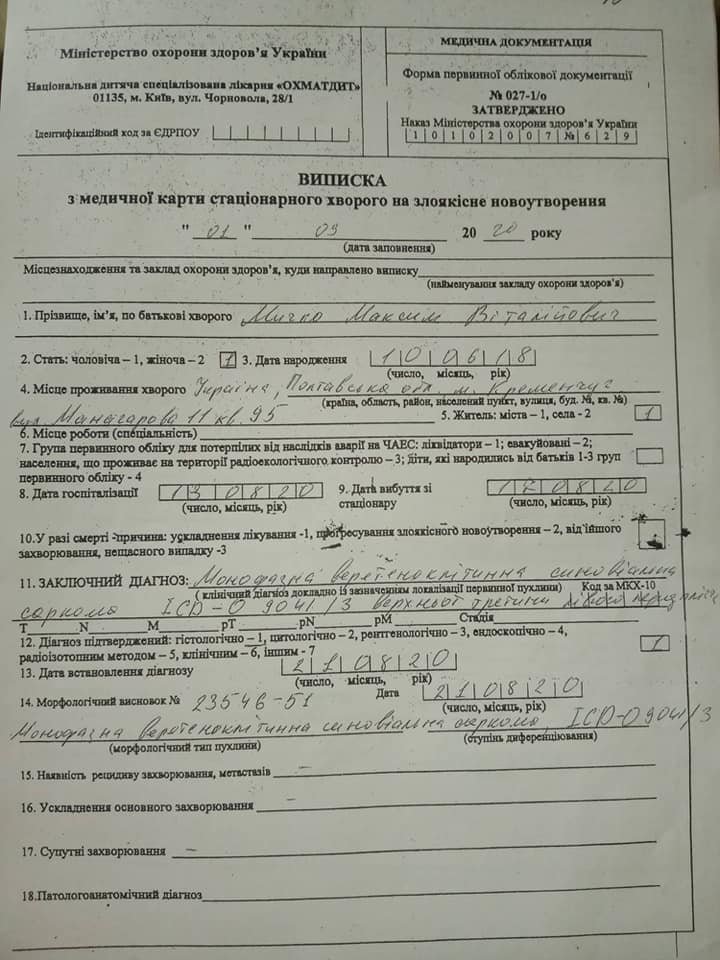 Міністерство охорони здоров'я України
Національна дитяча спеціалізована лікарня «ОХМАТДИТ»
01135, м. Київ, вул. Чорновола, 28/1
Ідентифікаційний код за ЄДРПОУ
МЕДИЧНА ДОКУМЕНТАЦІЯ
Форма первинної облікової документації
№ 027-1/о
ЗАТВЕРДЖЕНО
Наказ Міністерства охорони здоров'я України
1 0 1 0 2 0 0 7 № 6 2 9
ВИПИСКА
з медичної карти стаціонарного хворого на злоякісне новоутворення
" 01 " 09 20 20 року
(дата заповнення)
Місцезнаходження та заклад охорони здоров'я, куди направлено виписку
(найменування закладу охорони здоров'я)
1. Прізвище, ім'я, по батькові хворого Мичко Максим Віталійович
2. Стать: чоловіча – 1, жіноча – 2 1 3. Дата народження 1 0 0 6 1 8
(число, місяць, рік)
4. Місце проживання хворого Україна, Полтавська обл. м. Кременчуг
(країна, область, район, населений пункт, вулиця, буд. №, кв. №)
вул. Манагарова 11 кв. 95 5. Житель: міста – 1, села - 2 1
6. Місце роботи (спеціальність)
7. Група первинного обліку для потерпілих від наслідків аварії на ЧАЕС: ліквідатори – 1; евакуйовані – 2;
населення, що проживає на території радіоекологічного контролю – 3; діти, які народились від батьків 1-3 груп
первинного обліку - 4
8. Дата госпіталізації 1 3 0 8 2 0 9. Дата вибуття зі 1 7 0 8 2 0
(число, місяць, рік) стаціонару (число, місяць, рік)
10.У разі смерті -причина: ускладнення лікування -1, прогресування злоякісного новоутворення – 2, від іншого
захворювання, нещасного випадку -3
11. ЗАКЛЮЧНИЙ ДІАГНОЗ: Монофазна веретеноклітинна синовіальна
( клінічний діагноз докладно із зазначенням локалізації первинної пухлини) Код за МКХ-10
саркома ICD-O 9041/3 верхньої третини лівого
T N M pT pN pM Стадія
12. Діагноз підтверджений: гістологічно – 1, цитологічно – 2, рентгенологічно – 3, ендоскопічно – 4, 1
радіоізотопним методом – 5, клінічним – 6, іншим - 7
13. Дата встановлення діагнозу 2 1 0 8 2 0
(число, місяць, рік)
14. Морфологічний висновок № 23546-51 Дата 2 1 0 8 2 0
(число, місяць, рік)
Монофазна веретеноклітинна синовіальна саркома, ICD-O 9041/3
(морфологічний тип пухлини) (ступінь диференціювання)
15. Наявність рецидиву захворювання, метастазів –
16. Ускладнення основного захворювання –
17. Супутні захворювання –
18.Патологоанатомічний діагноз